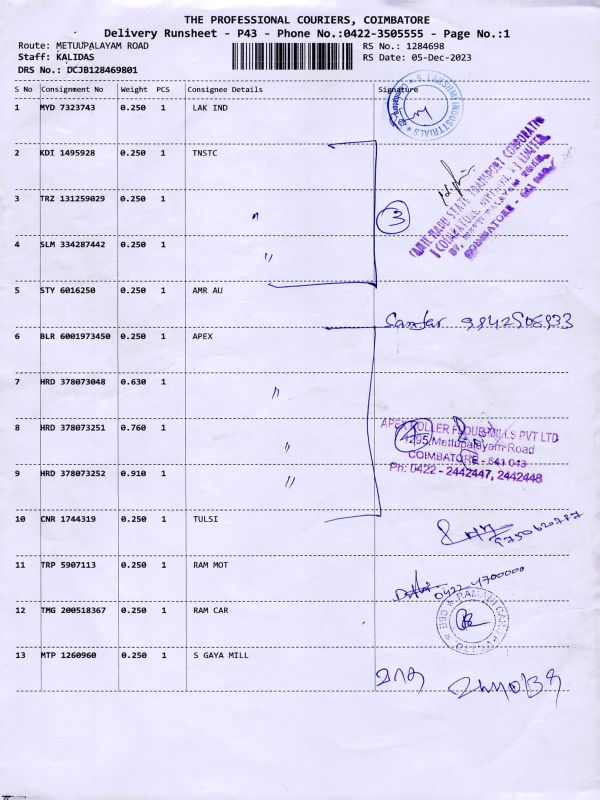 THE PROFESSIONAL COURIERS, COIMBATORE
Delivery Runsheet - P43 - Phone No.:0422-3505555 - Page No.:1
Route: METUUPALAYAM ROAD RS No.: 1284698
Staff: KALIDAS RS Date: 05-Dec-2023
DRS No.: DCJB128469801
S No Consignment No Weight PCS Consignee Details Signature
1 MYD 7323743 0.250 1 LAK IND
S. LAKSHMI INDUSTRIALS
2 KDI 1495928 0.250 1 TNSTC
TAMIL NADU STATE TRANSPORT CORPORATION
COIMBATORE
3 TRZ 131259029 0.250 1 "
3
4 SLM 334287442 0.250 1 "
5 STY 6016250 0.250 1 AMR AU
9842506933
6 BLR 6001973450 0.250 1 APEX
7 HRD 378073048 0.630 1 "
8 HRD 378073251 0.760 1 "
4
APEX ROLLER FLOUR MILLS PVT LTD
1295, Mettupalayam Road
COIMBATORE - 641 043
Ph: 0422 - 2442447, 2442448
9 HRD 378073252 0.910 1 "
10 CNR 1744319 0.250 1 TULSI
9750620787
11 TRP 5907113 0.250 1 RAM MOT
0422 4700000
12 TMG 200518367 0.250 1 RAM CAR
13 MTP 1260960 0.250 1 S GAYA MILL